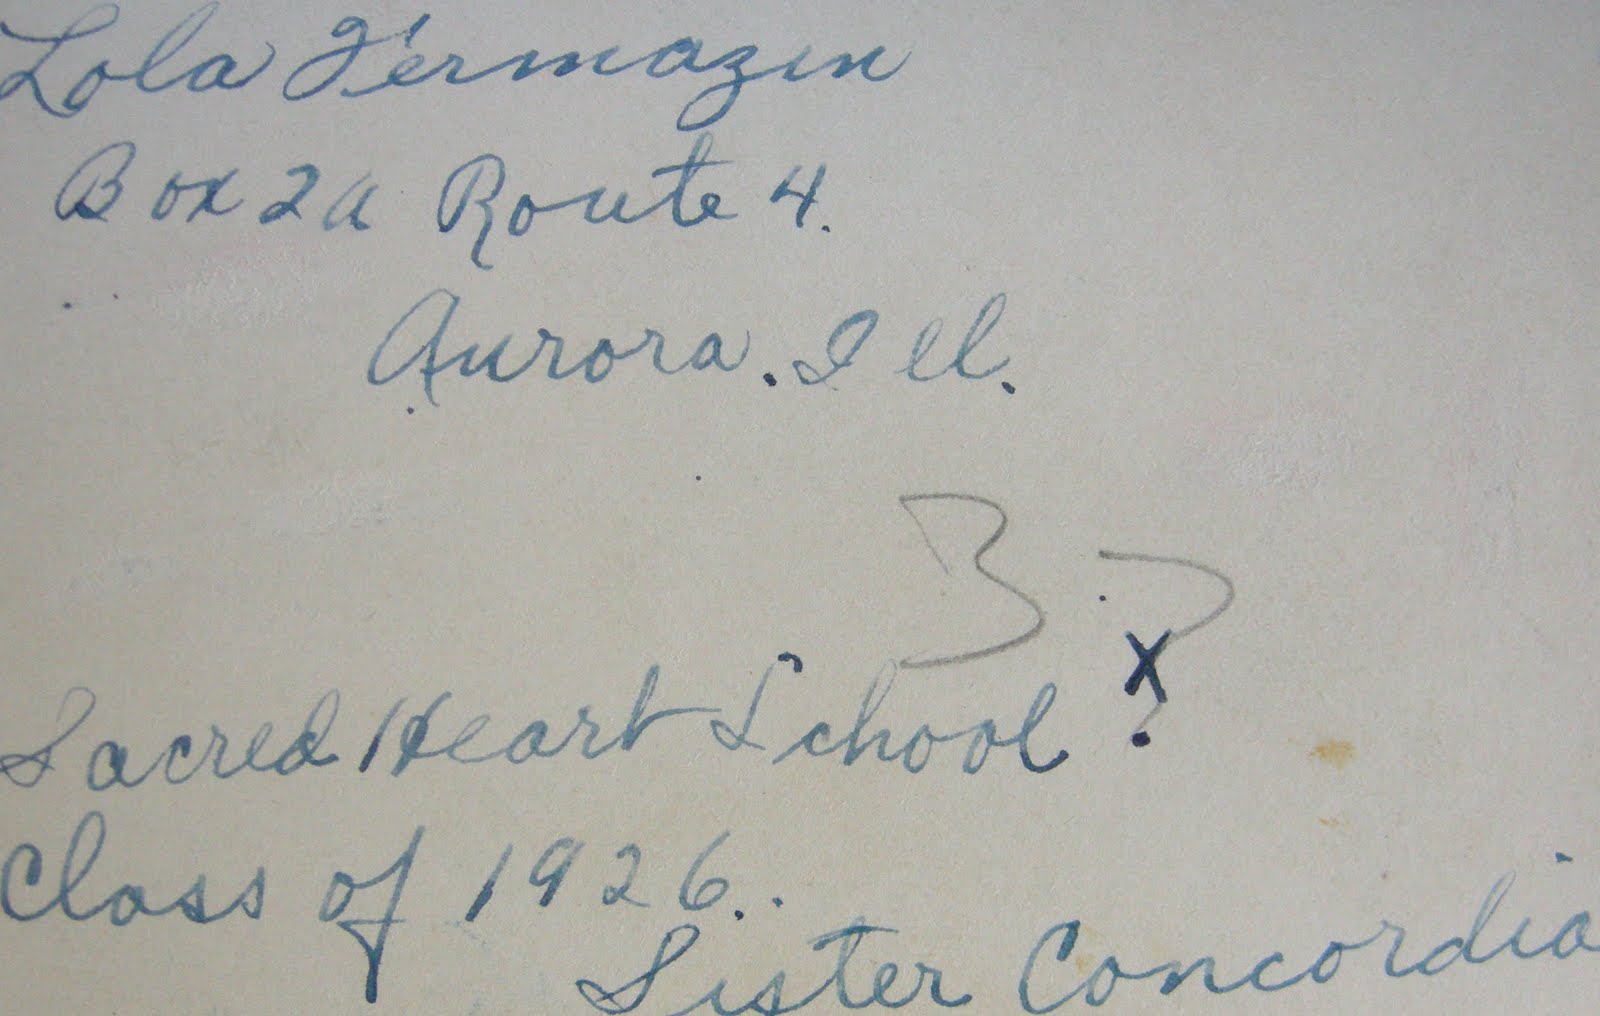 Lola Fermazin
Box 2a Route 4.
Aurora. Ill.
B
X
Sacred Heart School
Class of 1926..
Sister Concordia